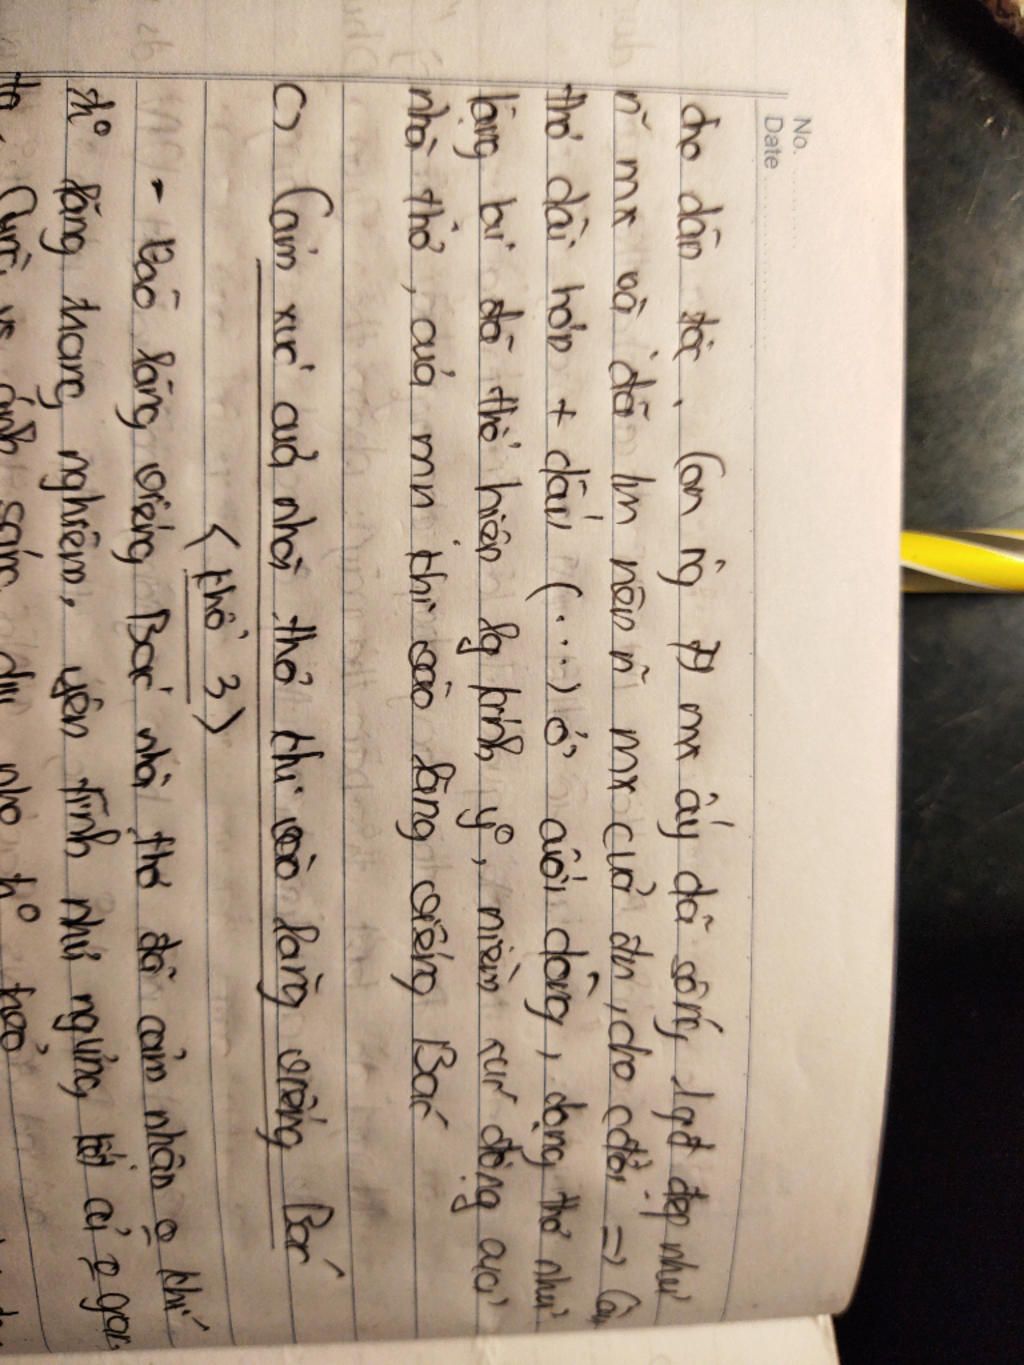 No.
Date
cho dân tộc. Con ng 79 mx ấy đã sống 1 cđ đẹp như
~ mx và đã ln nên ~ mx của đn, cho cđời => Câu
thơ dài hơn + dấu (...) ở cuối dòng, dòng thơ như
lắng lại đã thể hiện sự kính yê, niềm xúc động của
nhà thơ, của mn khi vào lăng viếng Bác
c) Cảm xúc của nhà thơ khi vào lăng viếng Bác
< khổ 3 >
- Vào lăng viếng Bác nhà thơ đã cảm nhận khí
thº lăng trang nghiêm, yên tĩnh như ngưng kết cả gian
ánh sáng dịu nhẹ